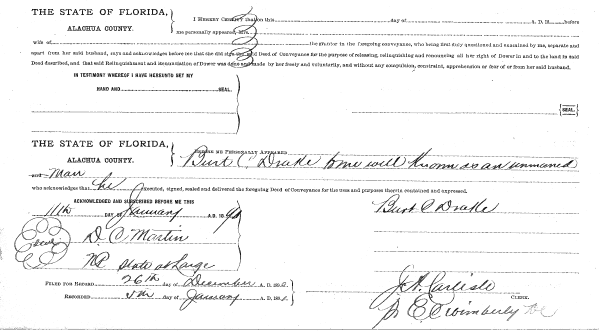 THE STATE OF FLORIDA,
ALACHUA COUNTY.
I HEREBY CERTIFY that on this day of A. D. 18 before
me personally appeared, Mrs.
wife of the grantor in the foregoing conveyance, who being first duly questioned and examined by me, separate and
apart from her said husband, says and acknowledges before me that she did sign said Deed of Conveyance for the purpose of releasing, relinquishing and renouncing all her right of Dower in and to the land in said
Deed described, and that said Relinquishment and Renunciation of Dower was done and made by her freely and voluntarily, and without any compulsion, constraint, apprehension or fear of or from her said husband.
IN TESTIMONY WHEREOF I HAVE HEREUNTO SET MY
HAND AND SEAL
SEAL
THE STATE OF FLORIDA,
ALACHUA COUNTY.
BEFORE ME PERSONALLY APPEARED
Burt C. Drake to me well known as an unmaried
and man
who acknowledges that he executed, signed, sealed and delivered the foregoing Deed of Conveyance for the uses and purposes therein contained and expressed.
ACKNOWLEDGED AND SUBSCRIBED BEFORE ME THIS
11th DAY OF January A.D. 18
Burt C Drake
Seal
D. C. Martin
NP State at Large
FILED FOR RECORD 26th day of December A. D. 18
RECORDED day of January A. D. 18
J. A. Carlisle
CLERK.
E C Wimberly DC